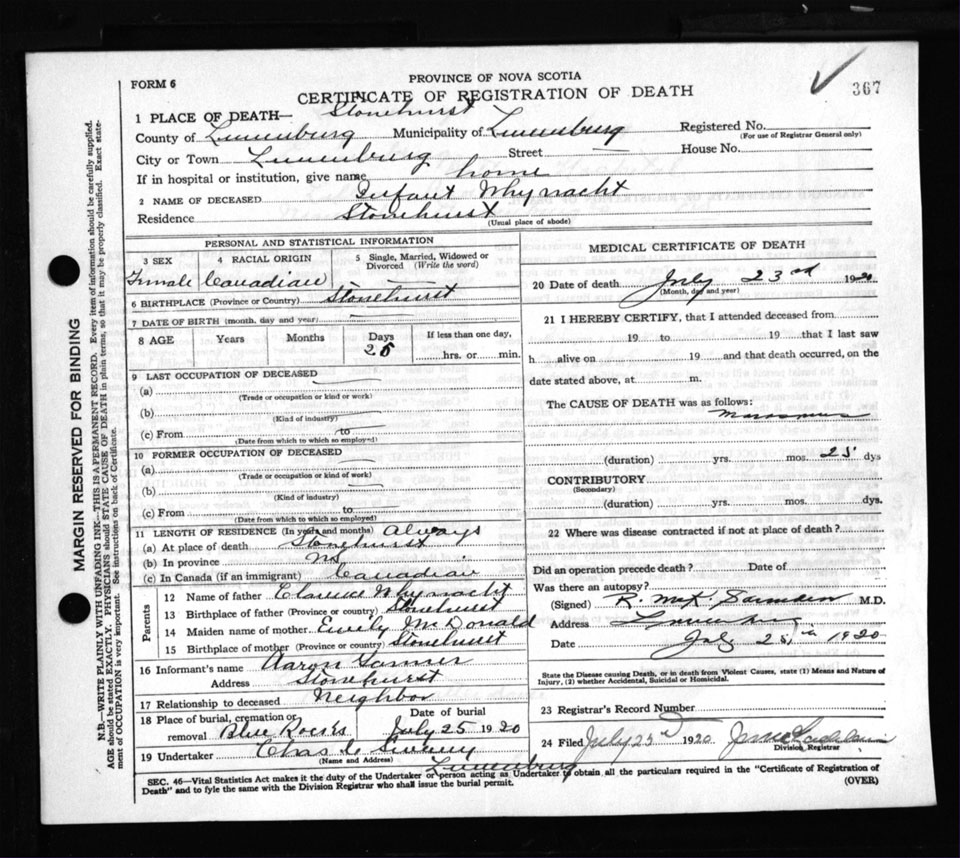 FORM 6
PROVINCE OF NOVA SCOTIA
367
CERTIFICATE OF REGISTRATION OF DEATH
1 PLACE OF DEATH— Stonehurst
County of Lunenburg Municipality of Lunenburg Registered No.
(For use of Registrar General only)
City or Town Lunenburg Street — House No.
If in hospital or institution, give name home
2 NAME OF DECEASED Infant Whynacht
Residence Stonehurst
(Usual place of abode)
PERSONAL AND STATISTICAL INFORMATION
3 SEX 4 RACIAL ORIGIN 5 Single, Married, Widowed or Divorced (Write the word)
Female Canadian —
6 BIRTHPLACE (Province or Country) Stonehurst
7 DATE OF BIRTH (month, day and year)
8 AGE Years Months Days If less than one day,
25 hrs. or min.
9 LAST OCCUPATION OF DECEASED
(a)
(Trade or occupation or kind or work)
(b)
(Kind of industry)
(c) From to
(Date from which to which so employed)
10 FORMER OCCUPATION OF DECEASED
(a)
(Trade or occupation or kind of work)
(b)
(Kind of industry)
(c) From to
(Date from which to which so employed)
11 LENGTH OF RESIDENCE (In years and months) Always
(a) At place of death Stonehurst
(b) In province NS
(c) In Canada (if an immigrant) Canadian
Parents
12 Name of father Clarence Whynacht
13 Birthplace of father (Province or country) Stonehurst
14 Maiden name of mother Emily McDonald
15 Birthplace of mother (Province or country) Stonehurst
16 Informant's name Aaron
Address Stonehurst
17 Relationship to deceased Neighbor
18 Place of burial, cremation or removal Blue Rocks Date of burial July 25 1920
19 Undertaker Chas
(Name and Address) Lunenburg
MEDICAL CERTIFICATE OF DEATH
20 Date of death July 23rd 192
(Month, day and year)
21 I HEREBY CERTIFY, that I attended deceased from
19 to 19 that I last saw
h alive on 19 and that death occurred, on the
date stated above, at m.
The CAUSE OF DEATH was as follows:
Marasmus
(duration) yrs. mos. 25 dys
CONTRIBUTORY
(Secondary)
(duration) yrs. mos. dys.
22 Where was disease contracted if not at place of death?
Did an operation precede death? Date of
Was there an autopsy?
(Signed) R. McK. M.D.
Address Lunenburg
Date July 25th 1920
State the Disease causing Death, or in death from Violent Causes, state (1) Means and Nature of
Injury, (2) whether Accidental, Suicidal or Homicidal.
23 Registrar's Record Number
24 Filed July 23d 1920
Division Registrar
SEC. 46—Vital Statistics Act makes it the duty of the Undertaker or person acting as Undertaker to obtain all the particulars required in the "Certificate of Registration of
Death" and to fyle the same with the Division Registrar who shall issue the burial permit.
(OVER)
MARGIN RESERVED FOR BINDING
N.B.—WRITE PLAINLY WITH UNFADING INK—THIS IS A PERMANENT RECORD. Every item of information should be carefully supplied.
AGE should be stated EXACTLY. PHYSICIANS should STATE CAUSE OF DEATH in plain terms, so that it may be properly classified. Exact state-
ment of OCCUPATION is very important. See instructions on back of Certificate.